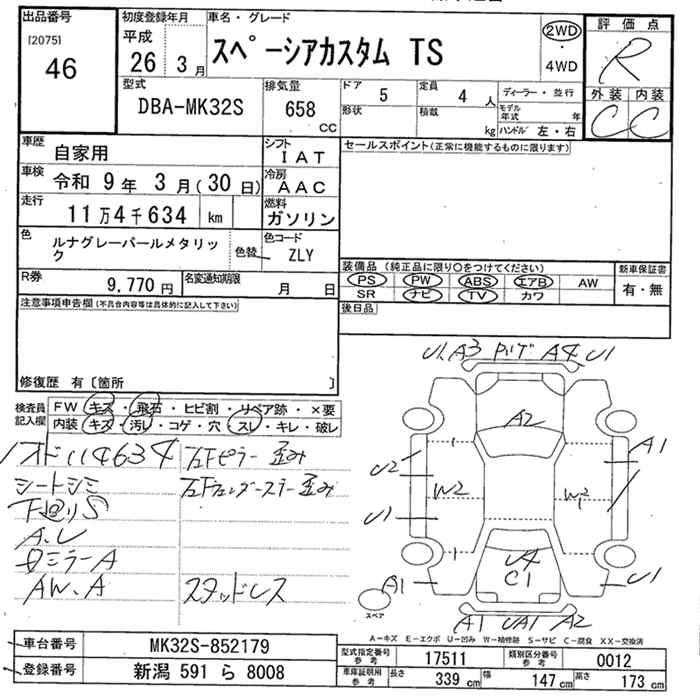 出品番号
[2075]
46
初度登録年月
平成
26 3月
車名・グレード
スペーシアカスタム TS
2WD
・
4WD
評価点
R
外装 内装
C C
型式
DBA-MK32S
排気量
658 CC
ドア 5
定員 4 人
形状
積載 kg
ディーラー・並行
モデル年式 年
ハンドル 左・右
車歴 自家用
シフト IAT
車検 令和 9年 3月(30日)
冷房 AAC
走行 11万4千634 km
燃料 ガソリン
色 ルナグレーパールメタリック
色替
色コード ZLY
R券 9,770円
名変通知期限 月 日
セールスポイント(正常に機能するものに限ります)
装備品(純正品に限り〇をつけてください)
PS PW ABS エアB AW
SR ナビ TV カワ
新車保証書
有・無
後日品
注意事項申告欄(不具合内容等は具体的に記入して下さい)
修復歴 有〔箇所 〕
検査員記入欄
FW キズ・飛石・ヒビ割・リペア跡・×要
内装 キズ・汚レ・コゲ・穴・スレ・キレ・破レ
114634
左Fピラー歪み
シートシミ
下廻りS
A.U
ミラーA
AW.A
スタッドレス
U1 A3 A4 U1
A2
A1
U2
W2
W2
U1
U4
C1
A1
U1
スペア
A1 UA1 A2
A-キズ E-エクボ U-凹み W-補修跡 S-サビ C-腐食 XX-交換済
車台番号 MK32S-852179
登録番号 新潟 591 ら 8008
型式指定番号 参考 17511
類別区分番号 参考 0012
車庫証明用 参考 長さ 339 cm 幅 147 cm 高さ 173 cm